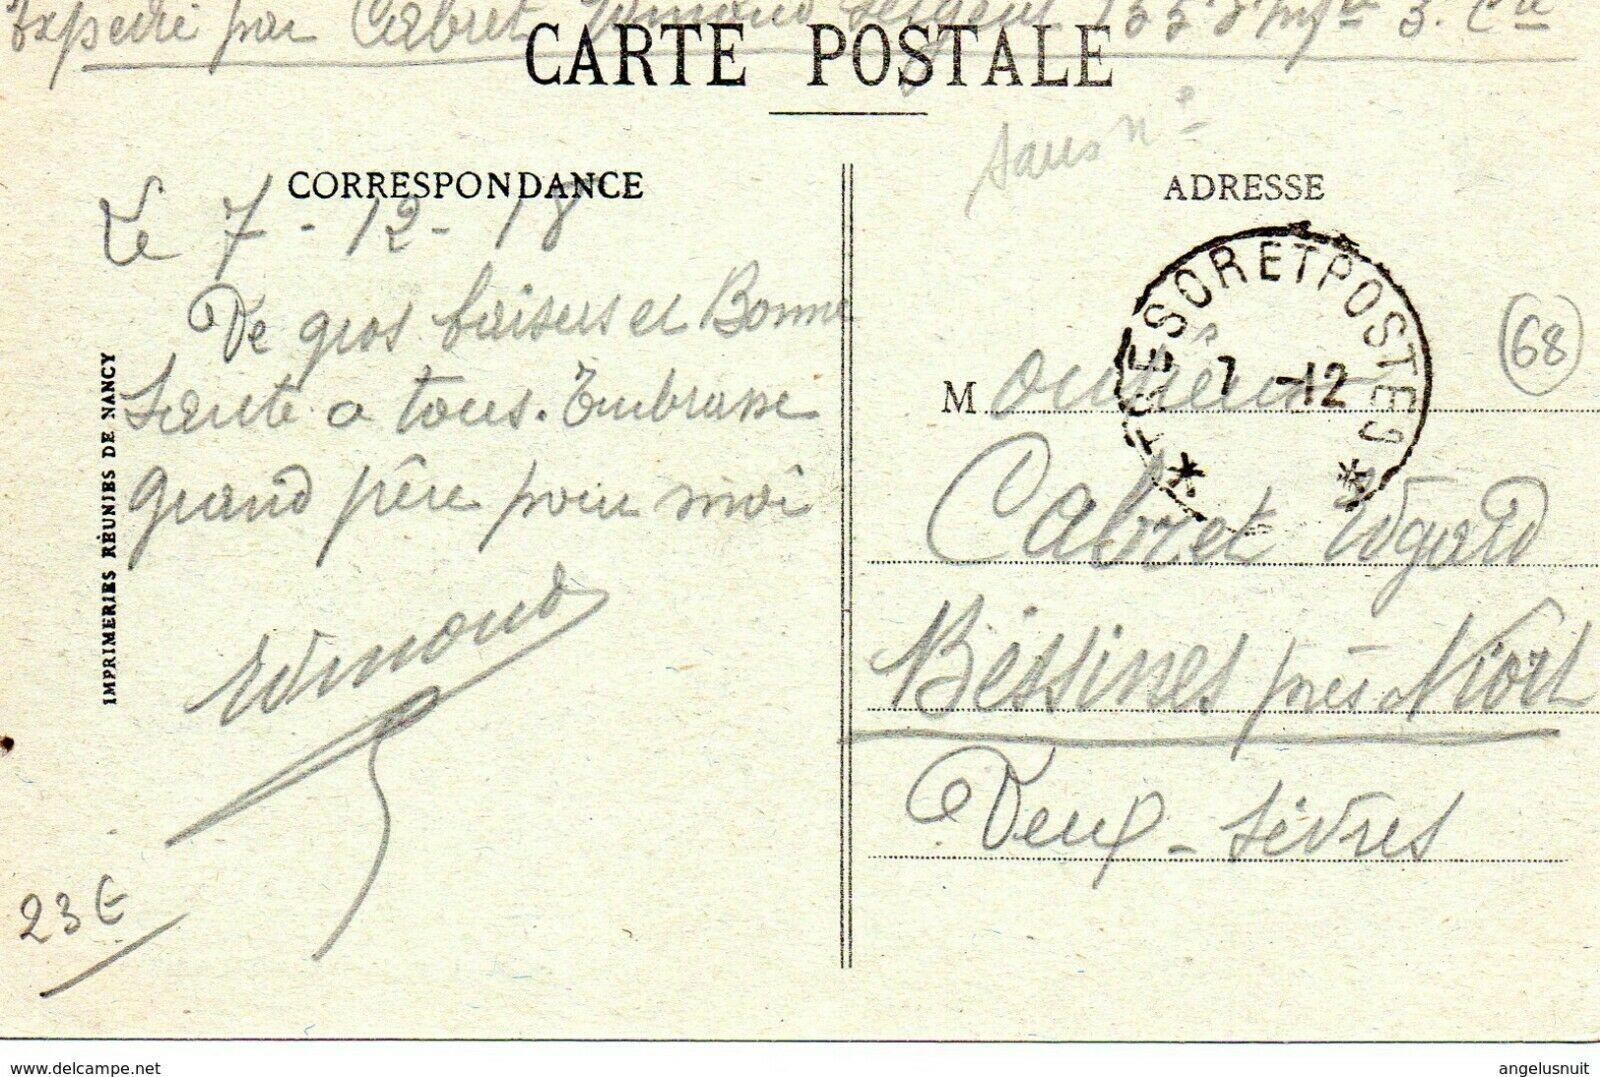 Expedié par Cabret Edmond Sergent 155
CARTE POSTALE
sans n°
CORRESPONDANCE
Le 7-12-18
De gros baisers et Bonne
Santé a tous. Embrasse
Grand père pour moi
Edmond
IMPRIMERIES RÉUNIES DE NANCY
23€
ADRESSE
TRESOR ET POSTES
7 -12
68
Monsieur
Cabret Edgard
Bessines près Niort
Deux-Sèvres
www.delcampe.net
angelusnuit